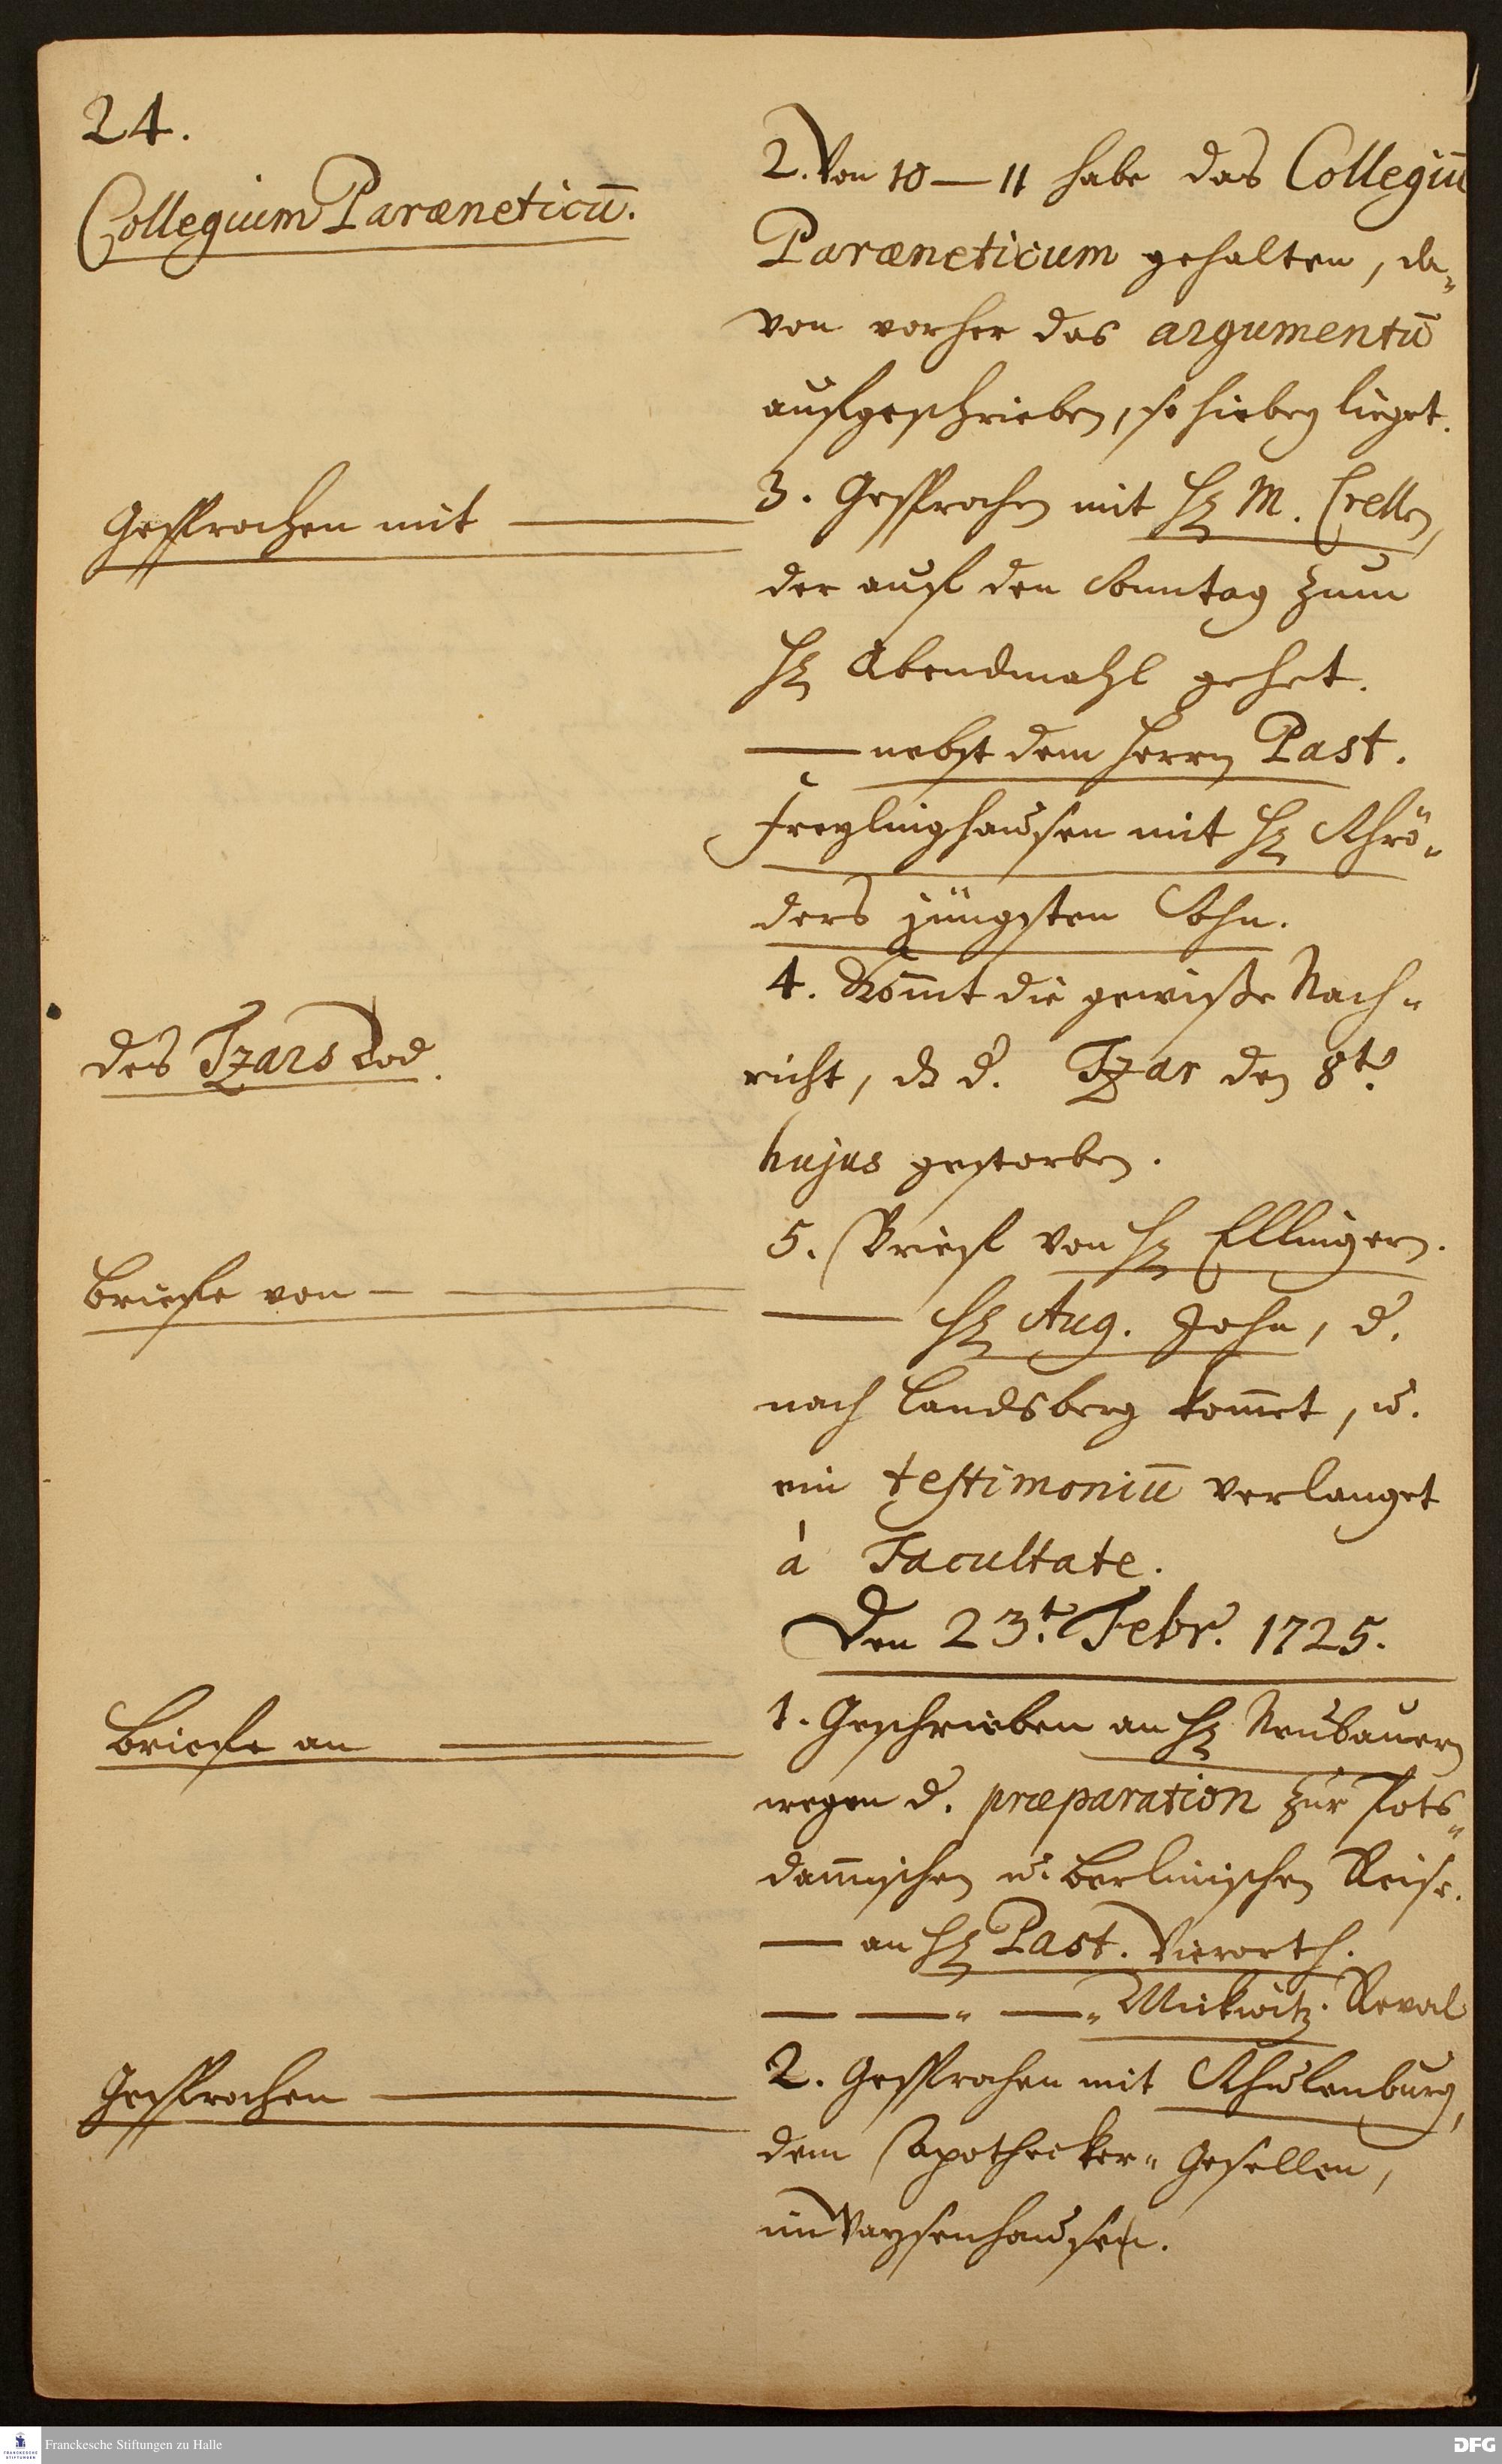 24.
Collegium Paræneticū.
2. Von 10 — 11 habe das Collegiū
Paræneticum gehalten, da„
von vorher das argumentū
aufgeschrieben, so hiebey lieget.
Gesprochen mit ——
3. Gesprochen mit H. M. Crellen,
der auf den Sonntag zum
H. Abendmahl gehet.
— nebst dem Herrn Past.
Freylinghausen mit H. Schrö„
ders jüngsten Sohn.
des Tzars Tod.
4. Kom̄t die gewiße Nach„
richt, dß d. Tzar den 8t.
hujus gestorben.
Briefe von —
5. Brief von H. Ellingern.
— H. Aug. John, d.
nach Landsberg kom̄et, u.
ein testimoniū verlanget
à Facultate.
Den 23t. Febr. 1725.
Briefe an ——
1. Geschrieben an H. Neubauern
wegen d. præparation zur Pots„
dam̄ischen u. Berlinischen Reise.
— an H. Past. Vierorth.
— —„ —„ Mickwitz. Reval
Gesprochen ——
2. Gesprochen mit Schulenburg,
dem Apothecker„ Gesellen,
im Waysenhause.